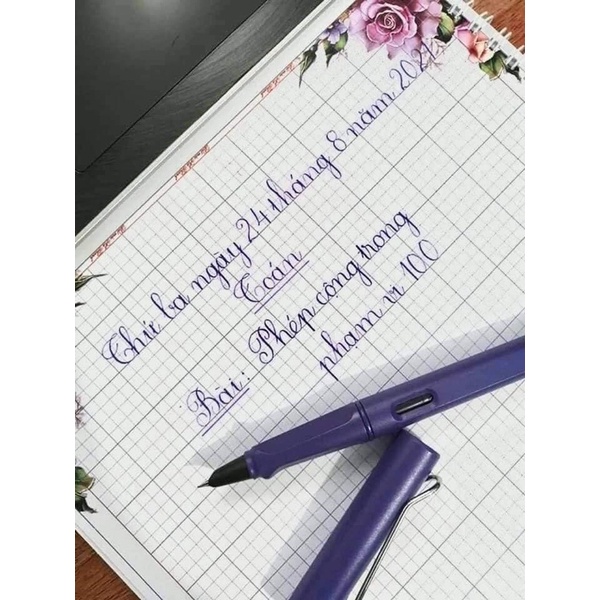 Thứ ba ngày 24 tháng 8 năm 2021
Toán
Bài: Phép cộng trong
phạm vi 100